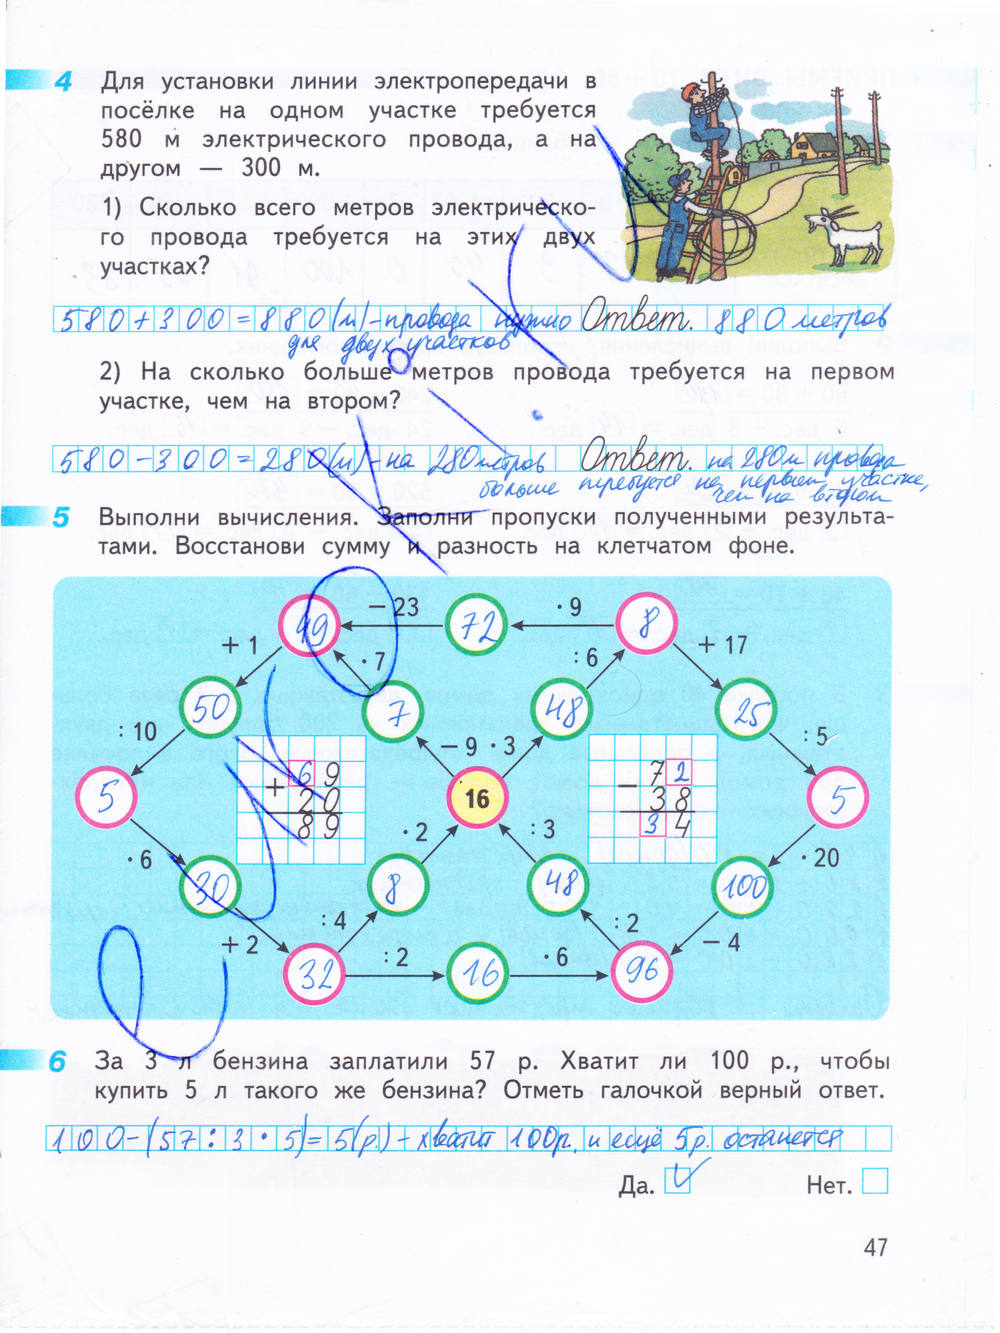 4 Для установки линии электропередачи в
посёлке на одном участке требуется
580 м электрического провода, а на
другом — 300 м.
1) Сколько всего метров электрическо-
го провода требуется на этих двух
участках?
580+300=880(м)-провода нужно Ответ. 880 метров
для двух участков
2) На сколько больше метров провода требуется на первом
участке, чем на втором?
580-300=280(м)-на 280 метров Ответ. на 280м провода
больше требуется на первом участке,
чем на втором
5 Выполни вычисления. Заполни пропуски полученными результа-
тами. Восстанови сумму и разность на клетчатом фоне.
49 − 23 72 · 9 8
+ 1 · 7 : 6 + 17
50 7 48 25
: 10 − 9 · 3 : 5
5 + 69 20 89 16 − 72 38 34 5
· 6 · 2 : 3 · 20
30 8 48 100
+ 2 : 4 : 2 − 4
32 : 2 16 · 6 96
6 За 3 л бензина заплатили 57 р. Хватит ли 100 р., чтобы
купить 5 л такого же бензина? Отметь галочкой верный ответ.
100-(57:3·5)=5(р.)-хватит 100р. и ещё 5р. останется
Да. Нет.
47